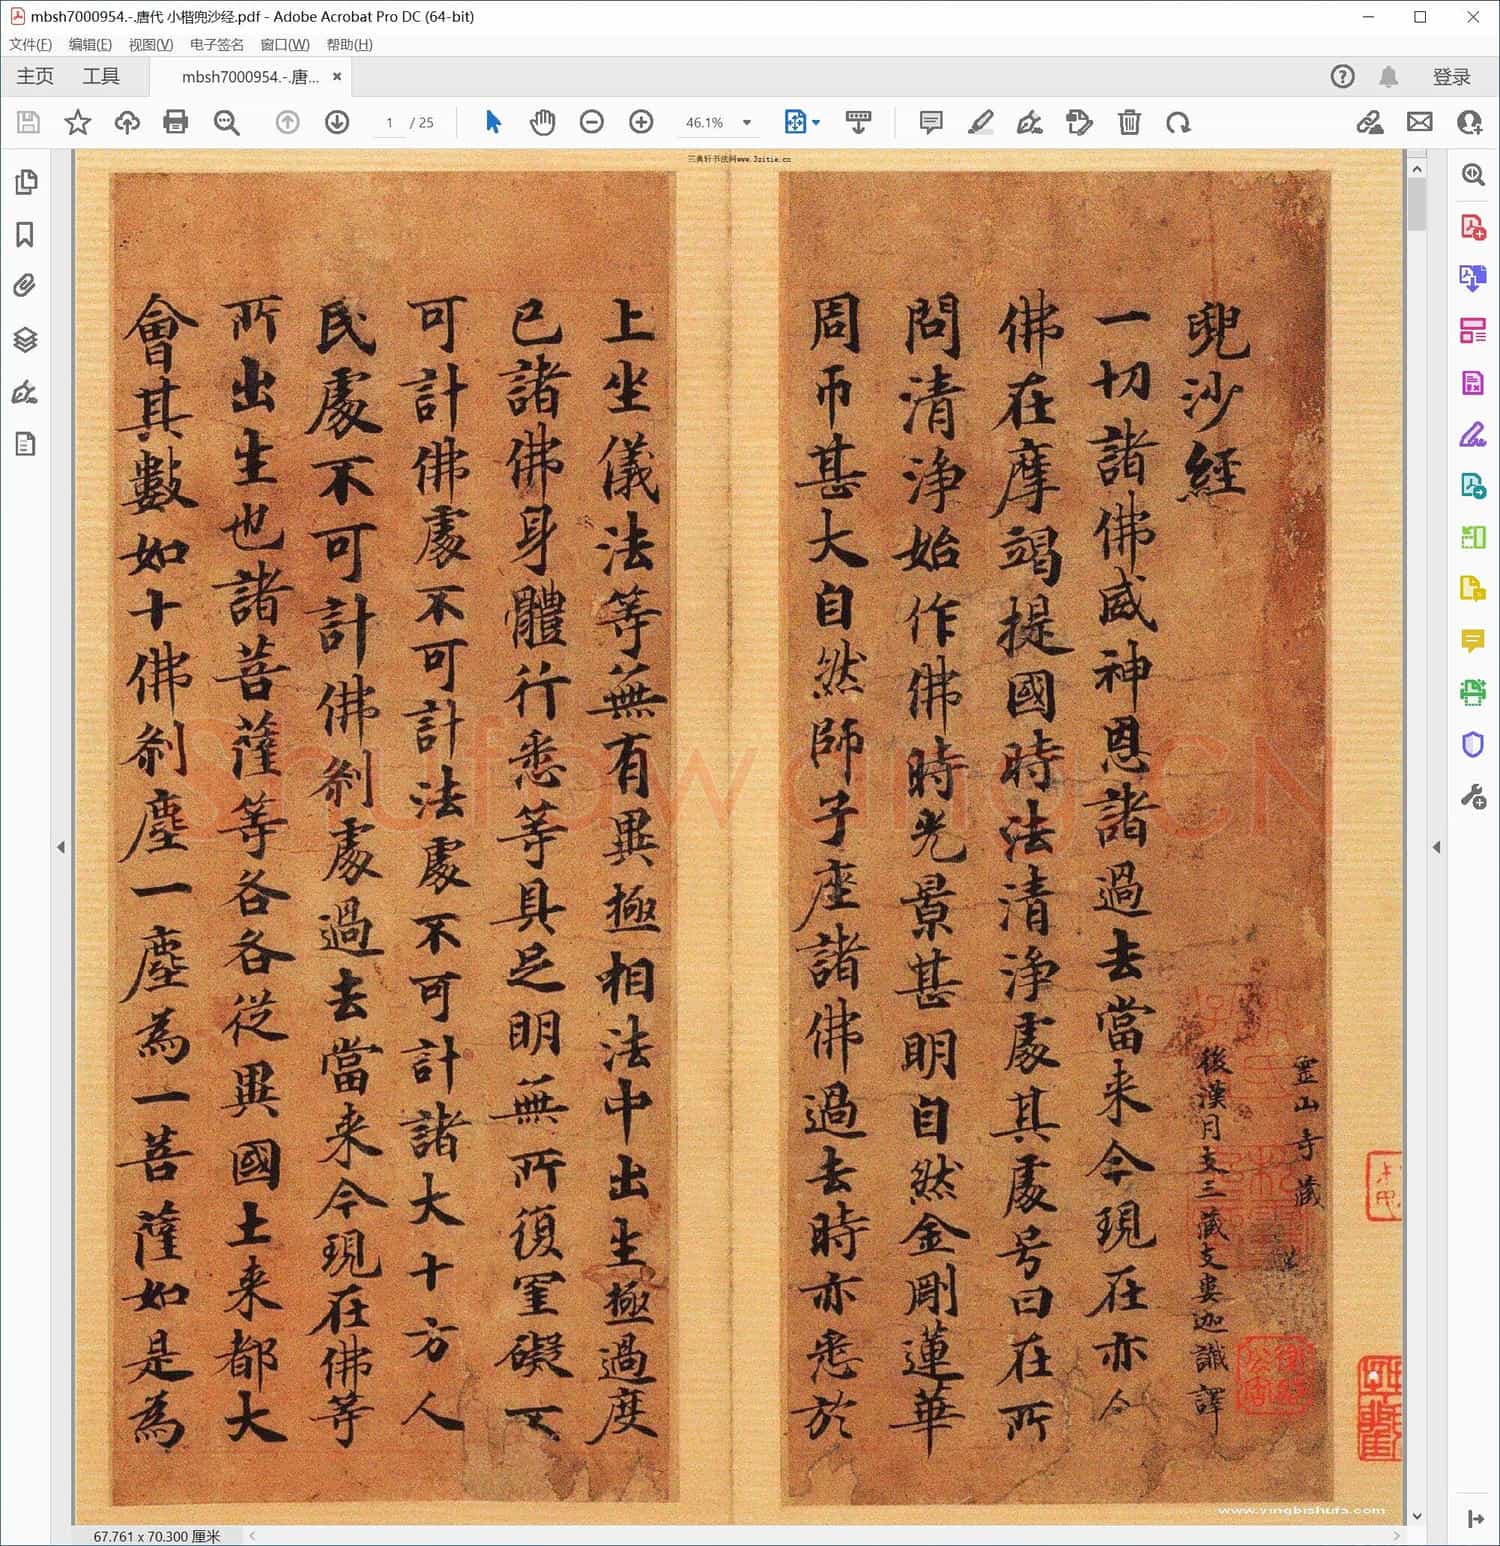 mbsh7000954.-.唐代 小楷兜沙经.pdf - Adobe Acrobat Pro DC (64-bit)
文件(F) 编辑(E) 视图(V) 电子签名 窗口(W) 帮助(H)
主页 工具 mbsh7000954.-.唐... × 登录
1 / 25 46.1%
三典轩书法网www.3zitie.cn
靈山寺藏
兜沙經
後漢月支三藏支婁迦讖譯
一切諸佛威神恩諸過去當来今現在亦今
佛在摩竭提國時法清淨處其處号曰在所
問清淨始作佛時光景甚明自然金剛蓮華
周帀甚大自然師子座諸佛過去時亦悉於
上坐儀法等無有異極相法中出生極過度
已諸佛身體行悉等具足明無所復罣礙不
可計佛處不可計法處不可計諸大十方人
民處不可計佛刹處過去當来今現在佛等
所出生也諸菩薩等各各從異國土来都大
會其數如十佛刹塵一塵為一菩薩如是為
shufawang.CN
www.yingbishufa.com
67.761 x 70.300 厘米